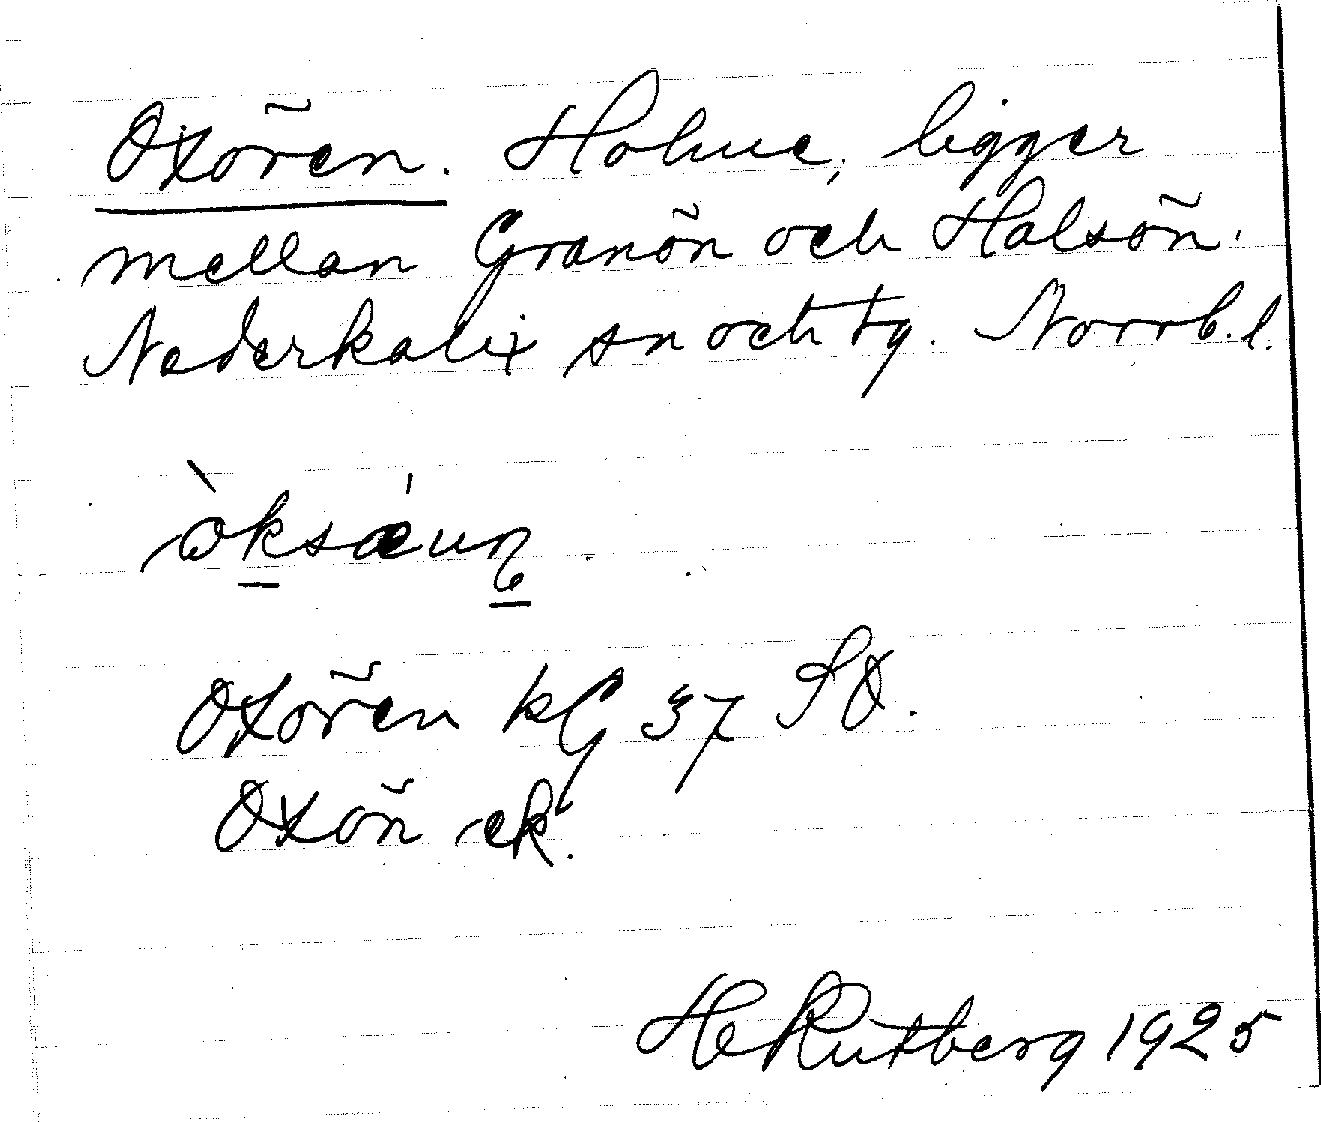 Oxören. Holme, ligger
mellan Granön och Halsön.
Nederkalix sn och tg. Norrb. l.
òksǿuņ.
Oxören kG 37 SO.
Oxön ek.
H Rutberg 1925